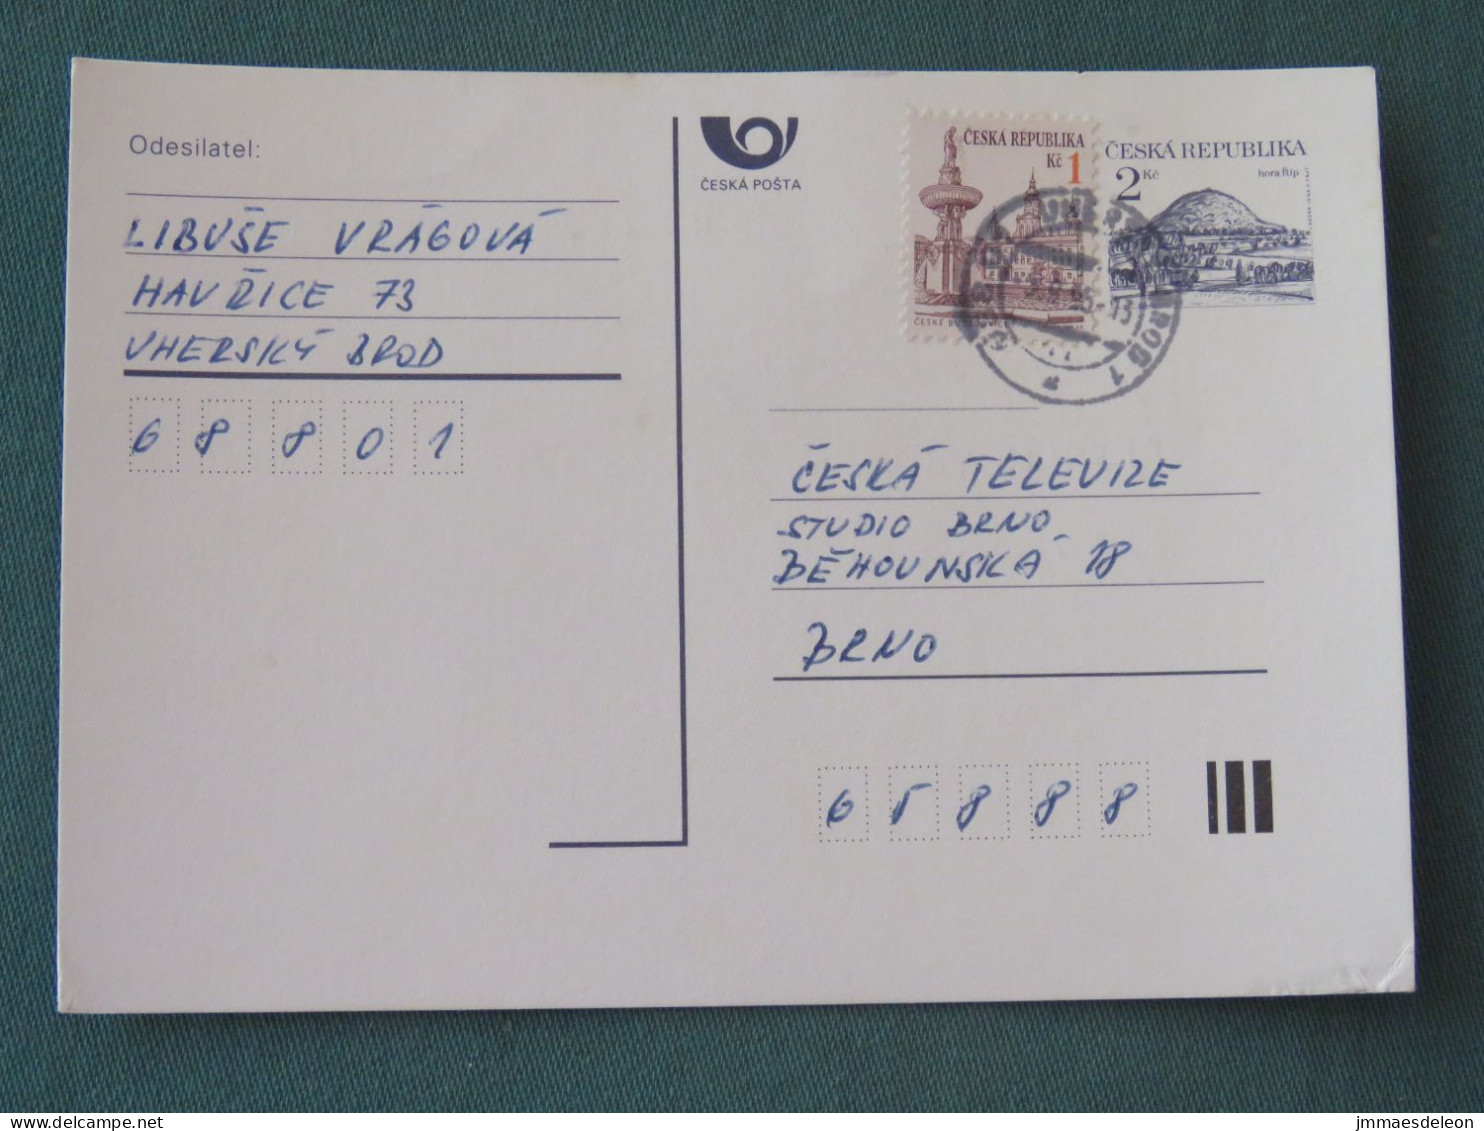 Odesilatel:
LIBUŠE VRÁGOVÁ
HAVŘICE 73
UHERSKÝ BROD
68801
ČESKÁ POŠTA
ČESKÁ REPUBLIKA
Kč 1
ČESKÉ BUDĚJOVICE
ČESKÁ REPUBLIKA
2 Kč
hora Říp
BROD 1
ČESKÁ TELEVIZE
STUDIO BRNO
BĚHOUNSKÁ 18
BRNO
65888
jmmaesdeleon